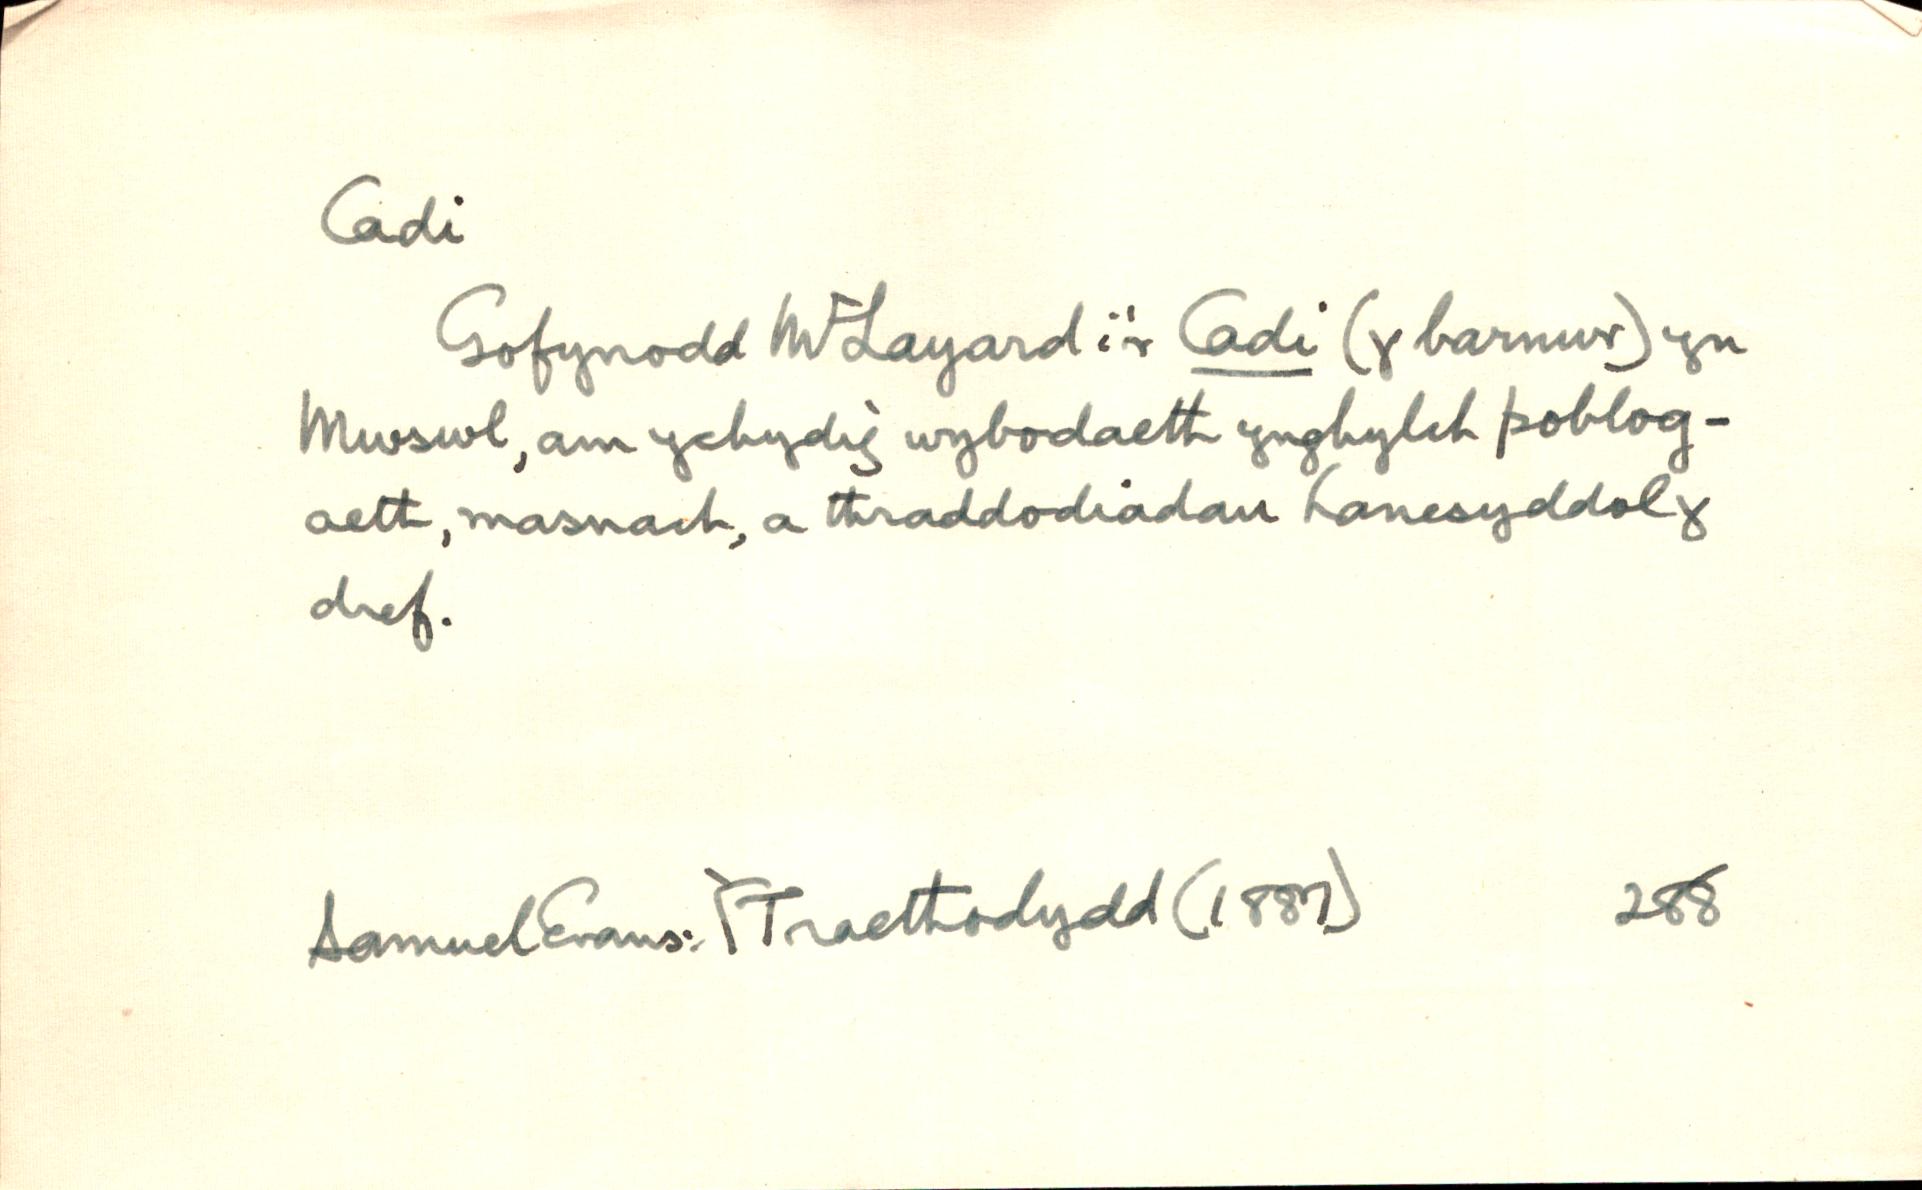 Cadi
Gofynodd Mr Layard i'r Cadi (y barnwr) yn
Mwswl, am ychydig wybodaeth ynghylch poblog-
aeth, masnach, a thraddodiadau hanesyddol y
dref.
Samuel Evans: Y Traethodydd (1887) 288